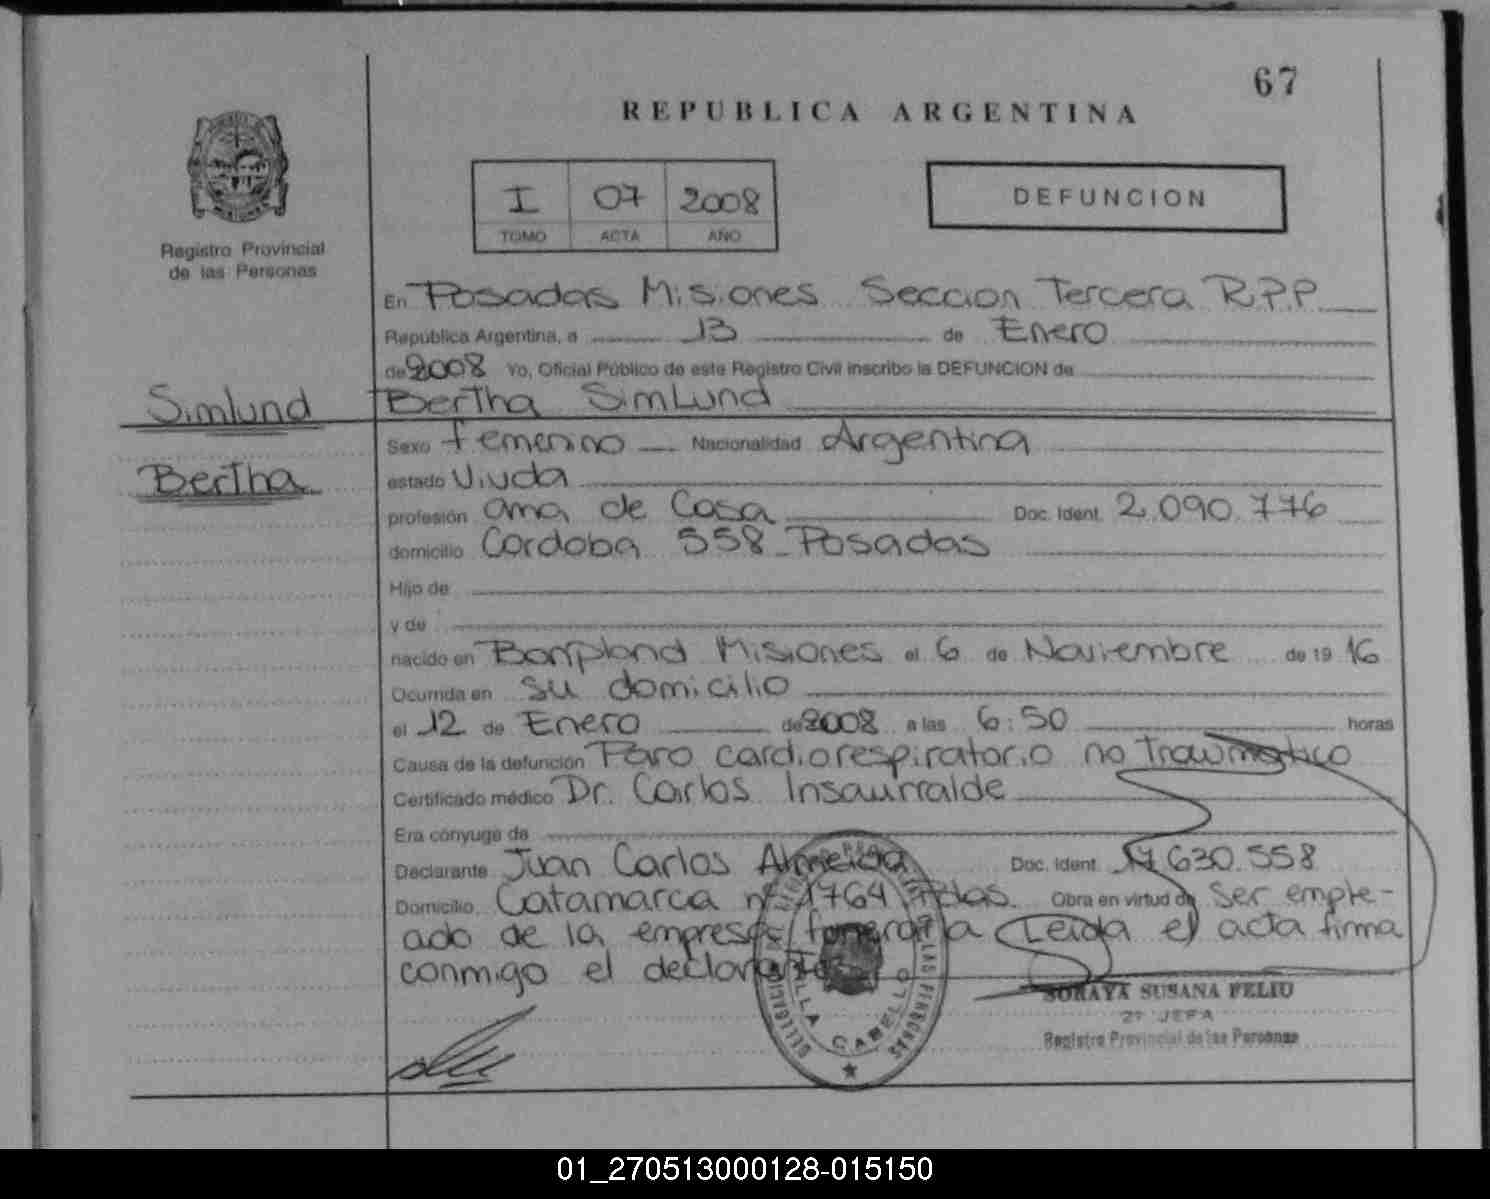 67
REPUBLICA ARGENTINA
I 07 2008
TOMO ACTA AÑO
DEFUNCION
Registro Provincial
de las Personas
En Posadas Misiones Seccion Tercera R.P.P
República Argentina, a 13 de Enero
de 2008 Yo, Oficial Público de este Registro Civil inscribo la DEFUNCION de
Simlund
Bertha
Bertha Simlund
Sexo femenino Nacionalidad Argentina
estado Viuda
profesión ama de Casa Doc. Ident. 2.090.776
domicilio Cordoba 558 Posadas
Hijo de
y de
nacido en Bonpland Misiones el 6 de Noviembre de 19 16
Ocurrida en su domicilio
el 12 de Enero de 2008 a las 6:50 horas
Causa de la defunción Paro cardiorespiratorio no Traumatico
Certificado médico Dr. Carlos Insaurralde
Era cónyuge de
Declarante Juan Carlos Almeida Doc. Ident. 17.630.558
Domicilio Catamarca nº 1764 Pdas. Obra en virtud de Ser emple-
ado de la empresa funeraria Leida el acta firma
conmigo el declarante
DELEGACION VILLA CABELLO
LAS PERSONAS
SORAYA SUSANA FELIU
2ª JEFA
Registro Provincial de las Personas
01_270513000128-015150